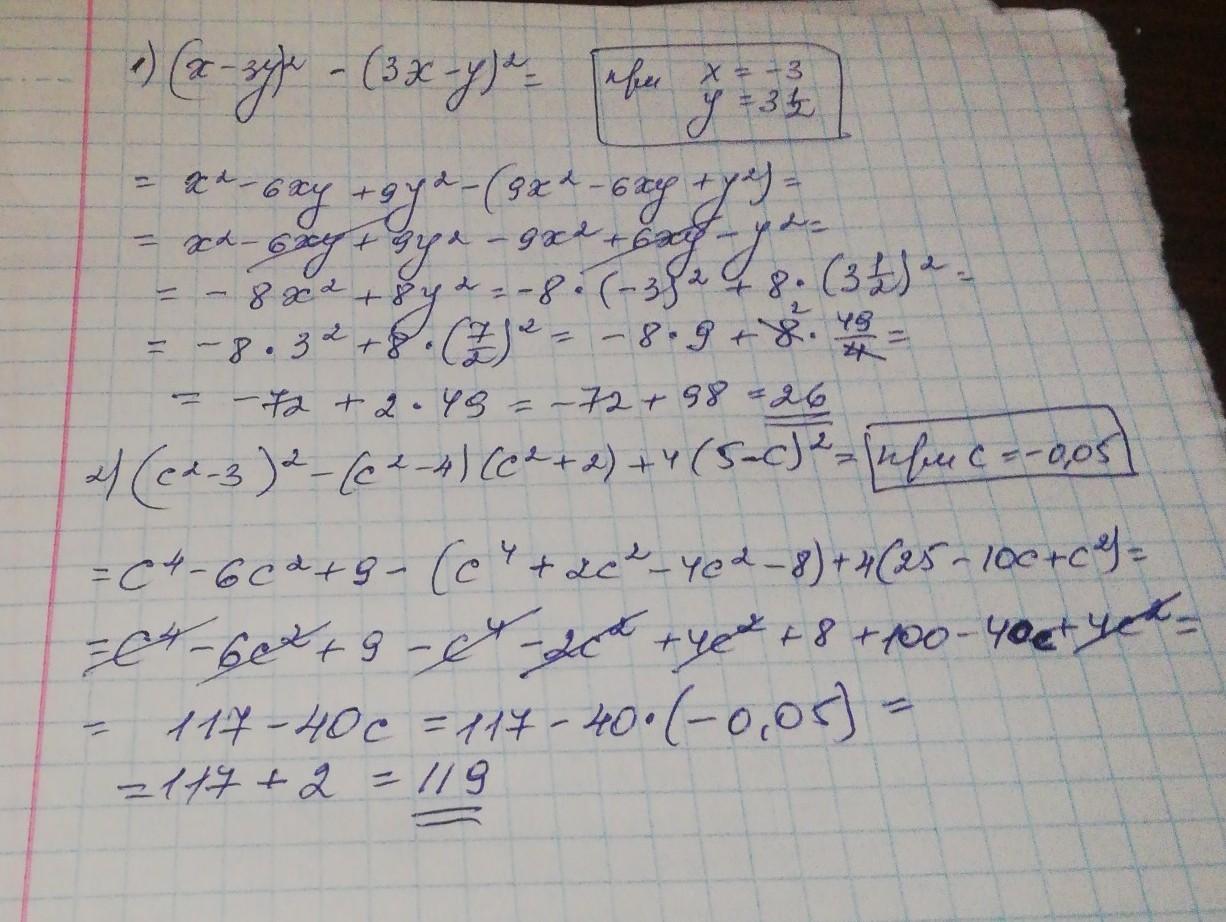 1) (x-3y)² - (3x-y)² = при x = -3
y = 3 1/2
= x² - 6xy + 9y² - (9x² - 6xy + y²) =
= x² - 6xy + 9y² - 9x² + 6xy - y² =
= - 8x² + 8y² = -8 · (-3)² + 8 · (3 1/2)² =
= -8 · 3² + 8 · (7/2)² = -8 · 9 + 8² · 49/4 =
= -72 + 2 · 49 = -72 + 98 = 26
2) (c²-3)² - (c²-4)(c²+2) + 4(5-c)² = при c = -0,05
= c⁴ - 6c² + 9 - (c⁴ + 2c² - 4c² - 8) + 4(25 - 10c + c²) =
= c⁴ - 6c² + 9 - c⁴ - 2c² + 4c² + 8 + 100 - 40c + 4c² =
= 117 - 40c = 117 - 40 · (-0,05) =
= 117 + 2 = 119